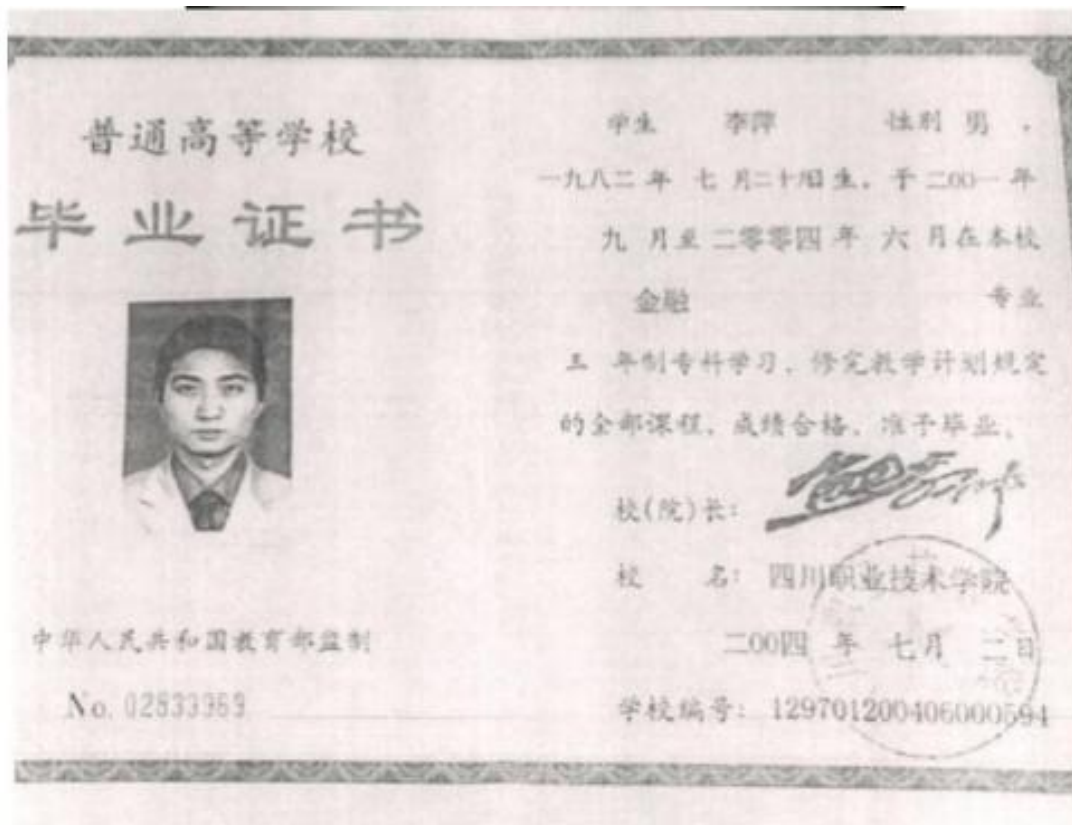 普通高等学校
毕业证书
中华人民共和国教育部监制
No. 02833969
学生 李萍 性别 男 ,
一九八二 年 七 月二十 日 生, 于 二00一 年
九 月至 二零零四 年 六 月在本校
金融 专业
三 年制专科学习, 修完教学计划规定
的全部课程, 成绩合格, 准予毕业。
校(院)长:
校 名: 四川职业技术学院
二00四 年 七月 二日
学校编号: 129701200406000594